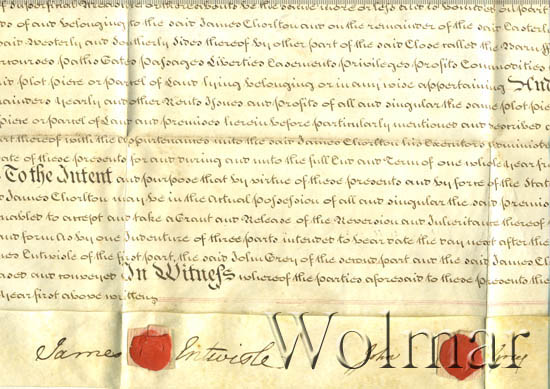 of superficial Measure or thereabouts be the same more or less and is bounded in part
ds of and belonging to the said James Chorlton and on the remainder of the said Easterl
said Westerly and Southerly Sides thereof by other part of the said Close called the Barn ff
Watercourses Paths Gates Passages Liberties Easements Privileges Profits Commodities
id plot piece or parcel of Land lying belonging or in any wise appertaining And
mainders yearly and other Rents Issues and profits of all and singular the same plot pie
piece or parcel of Land and premises herein before particularly mentioned and described
art thereof with the appurtenances unto the said James Chorlton his executors administ
ate of these presents for and during and unto the full End and Term of one whole year fr
To the Intent and purpose that by virtue of these presents and by force of the Stat
d James Chorlton may be in the Actual Possession of all and singular the said premis
enabled to accept and take a Grant and Release of the Reversion and Inheritance thereof
and form as by one Indenture of three parts intended to bear date the day next after the
mes Entwisle of the first part, the said John Grey of the second part and the said James C
ased and conveyed In Witness whereof the parties aforesaid to these presents the
year first above written
James Entwisle John Grey
Wolmar